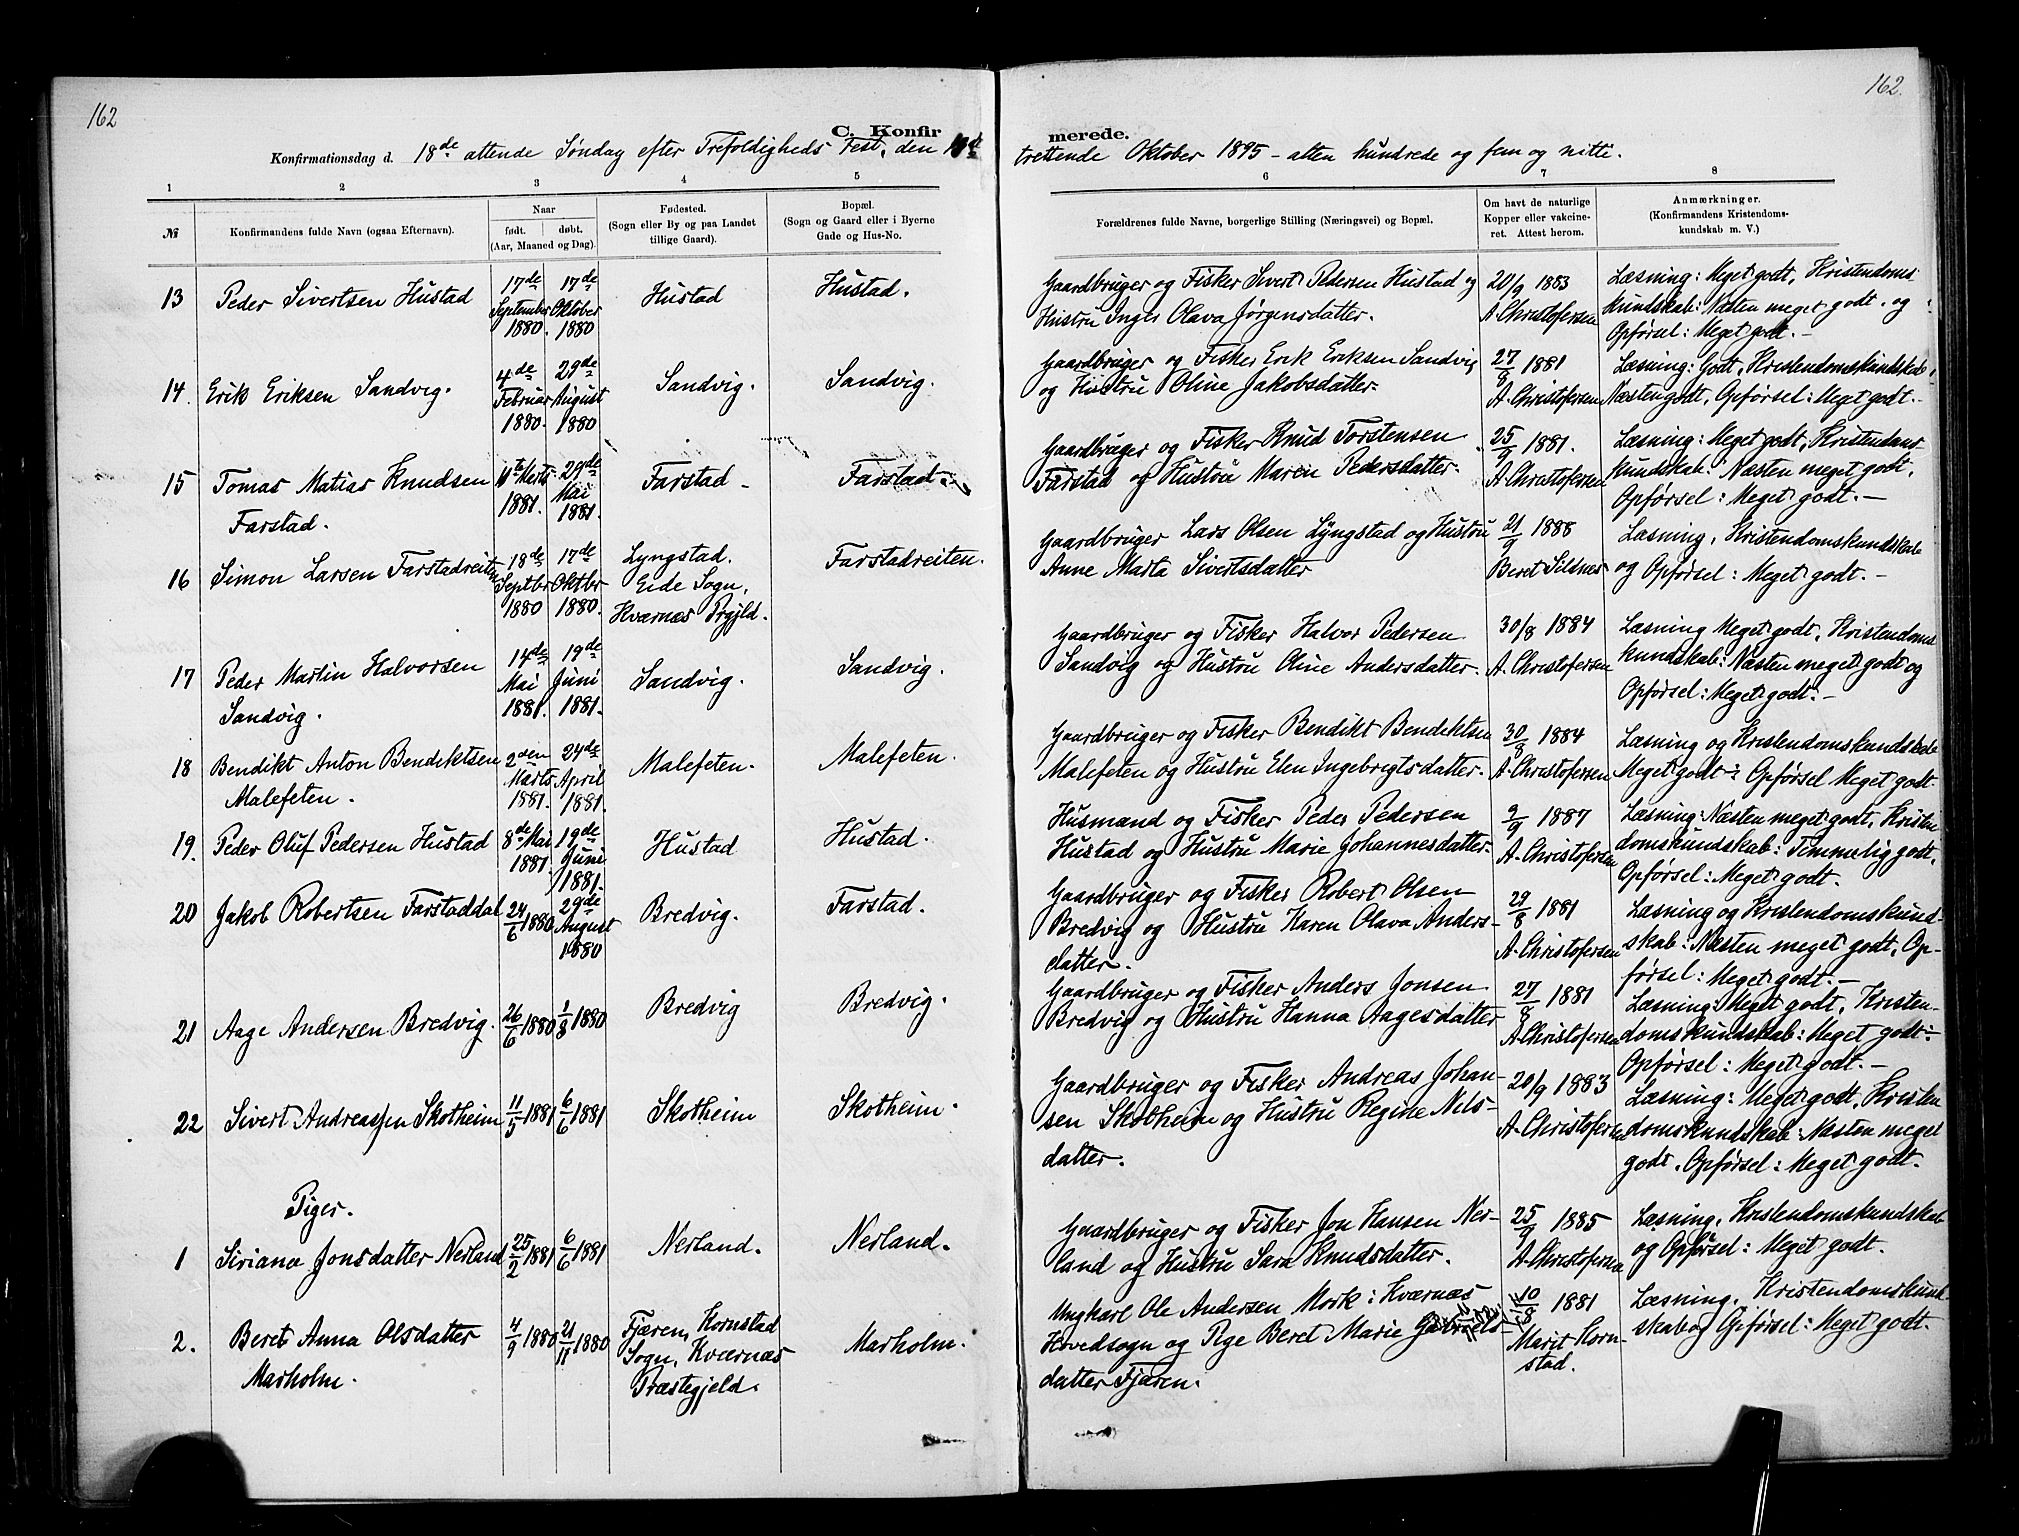 162
162.
C. Konfir
merede.
Konfirmationsdag d. 18de attende Søndag efter Trefoldigheds Fest, den
trettende Oktober 1895 - atten hundrede og fem og nitti.
1 2 3 4 5
6 7 8
№
Konfirmandens fulde Navn (ogsaa Efternavn).
Naar
født. døbt.
(Aar, Maaned og Dag).
Fødested.
(Sogn eller By og paa Landet
tillige Gaard).
Bopæl.
(Sogn og Gaard eller i Byerne
Gade og Hus-No.
Forældrenes fulde Navne, borgerlige Stilling (Næringsvei) og Bopæl.
Om havt de naturlige
Kopper eller vakcine-
ret. Attest herom.
Anmærkninger.
(Konfirmandens Kristendoms-
kundskab m. V.)
13
Peder Sivertsen Hustad
17de
September
1880.
17de
Oktober
1880
Hustad
Hustad.
Gaardbruger og Fisker Sivert Pedersen Hustad og
Hustru Inger Olava Jørgensdatter.
20/9 1883
A. Christofersen
Læsning: Meget godt, Kristendoms-
kundskab: Næsten meget godt. og
Opførsel: Meget godt. -
14.
Erik Eriksen Sandvig.
4de
Februar
1880.
29de
August
1880
Sandvig.
Sandvig.
Gaardbruger og Fisker Erik Eriksen Sandvig
og Hustru Oline Jakobsdatter.
27/8 1881
A. Christofersen
Læsning: Godt, Kristendomskundskab,
Næsten godt, Opførsel: Meget godt. -
15
Tomas Matias Knudsen
Farstad.
11te Marts
1881.
29de
Mai
1881.
Farstad -
Farstad.
Gaardbruger og Fisker Knud Torstensen
Farstad og Hustru Maren Pedersdatter.
25/9 1881.
A. Christofersen
Læsning: Meget godt, Kristendoms
kundskab: Næsten meget godt,
Opførsel: Meget godt. -
16
Simon Larsen Farstadreiten
18de
Septbr
1880
17de
Oktbr
1880.
Lyngstad.
Eide Sogn,
Kværnæs Prgjld.
Farstadreiten.
Gaardbruger Lars Olsen Lyngstad og Hustru
Anne Marta Sivertsdatter
21/9 1888
Beret Sildnes
Læsning, Kristendomskundskab
og Opførsel: Meget godt. -
17
Peder Martin Halvorsen
Sandvig.
14de
Mai
1881.
19de
Juni
1881.
Sandvig.
Sandvig.
Gaardbruger og Fisker Halvor Pedersen
Sandvig og Hustru Oline Andersdatter.
30/8 1884
A. Christofersen
Læsning Meget godt, Kristendoms
kundskab: Næsten meget godt og
Opførsel: Meget godt. -
18
Bendikt Anton Bendiktsen
Malefeten.
2den
Marts
1881.
24de
April
1881.
Malefeten.
Malefeten.
Gaardbruger og Fisker Bendikt Bendiktsen
Malefeten og Hustru Elen Ingebregtsdatter.
30/8 1884
A. Christofersen
Læsning og Kristendomskundskab
Meget godt: Opførsel Meget godt.
19.
Peder Oluf Pedersen Hustad
8de Mai
1881.
19de
Juni
1881.
Hustad
Hustad.
Husmand og Fisker Peder Pedersen
Hustad og Hustru Marie Johannesdatter.
9/9 1887
A. Christofersen
Læsning: Næsten meget godt, Kristen
domskundskab: Temmelig godt,
Opførsel: Meget godt.
20
Jakob Robertsen Farstaddal
24/6 1880
29de
August
1880
Bredvig.
Farstad.
Gaardbruger og Fisker Robert Olsen
Bredvig og Hustru Karen Olava Anders-
datter.
29/8 1881
A. Christofersen
Læsning og Kristendomskund-
skab: Næsten meget godt, Op-
førsel: Meget godt. -
21
Aage Andersen Bredvig.
26/6 1880
1/8 1880
Bredvig
Bredvig.
Gaardbruger og Fisker Anders Jonsen
Bredvig og Hustru Hanna Aagesdatter
27/8 1881
A. Christofersen
Læsning: Meget godt, Kristen-
domskundskab: Meget godt:
Opførsel: Meget godt. -
22
Sivert Andreassen Skotheim
11/5 1881
6/6 1881
Skotheim
Skotheim.
Gaardbruger og Fisker Andreas Johan-
sen Skotheim og Hustru Regine Nils-
datter.
20/9 1883
A. Christofersen
Læsning: Meget godt, Kristen
domskundskab: Næsten meget
godt, Opførsel: Meget godt.
Piger.
1
Siriana Jonsdatter Nerland
25/2 1881
6/6 1881
Nerland.
Nerland.
Gaardbruger og Fisker Jon Hansen Ner-
land og Hustru Sara Knudsdatter.
25/9 1885
A. Christofersen
Læsning, Kristendomskundskab
og Opførsel: Meget godt.
2.
Beret Anna Olsdatter
Marholm.
4/9 1880
21/11 1880
Fjæren, Kornstad
Sogn, Kværnæs
Præstegjeld.
Marholm.
Ungkarl Ole Andersen Mork: Kværnæs
Hovedsogn og Pige Beret Marie
datter Fjæren.
10/8 1881
Marit Korn-
stad.
Læsning, Kristendomskund-
skab og Opførsel: Meget godt.